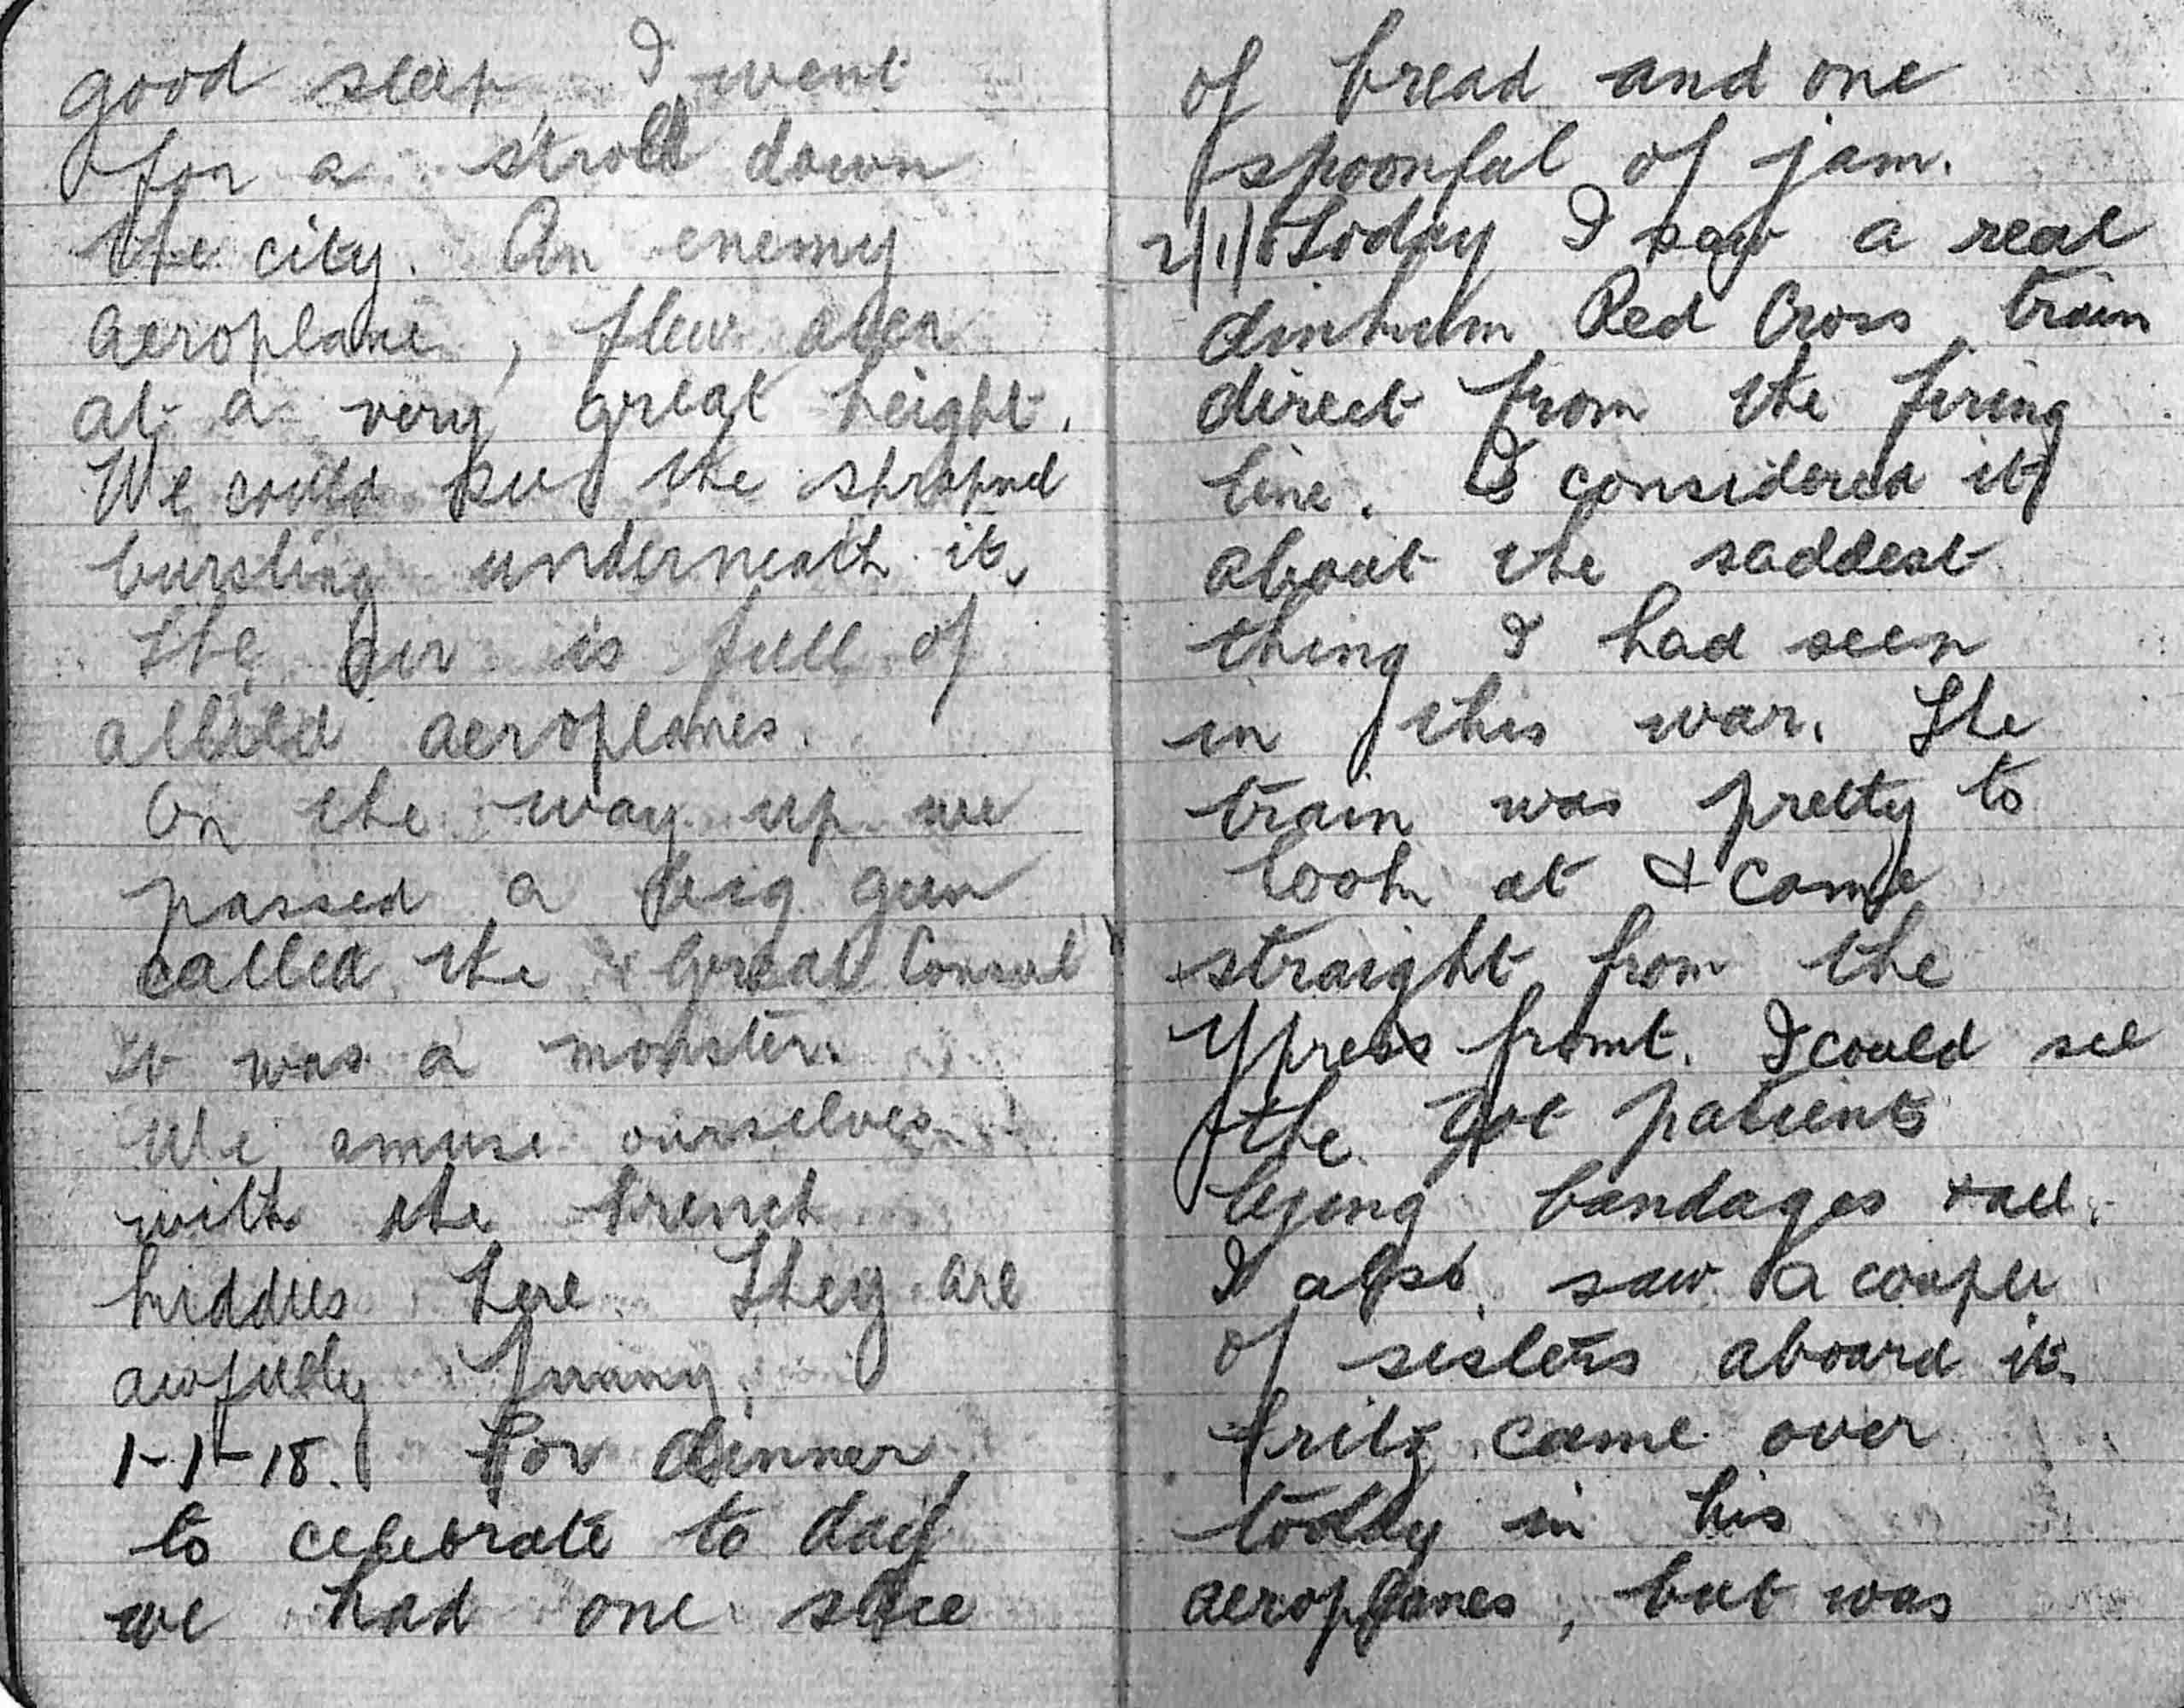 good sleep, I went
for a stroll down
the city. An enemy
aeroplane, flew over
at a very great height.
We could see the
bursting underneath it.
The air is full of
allied aeroplanes.
On the way up we
passed a big gun
called the Great Consul
It was a monster.
We amuse ourselves
with the French
kiddies here. They are
awfully funny.
1-1-18. For dinner,
to celebrate to day
we had one slice
of bread and one
spoonful of jam.
Today I saw a real
dinkum Red Cross train
direct from the firing
line. I considered it
about the saddest
thing I had seen
in this war. The
train was pretty to
look at & came
straight from the
Ypress front. I could see
the patients
lying bandages & all.
I also saw a couple
of sisters aboard it.
Fritz came over
today in his
aeroplanes, but was